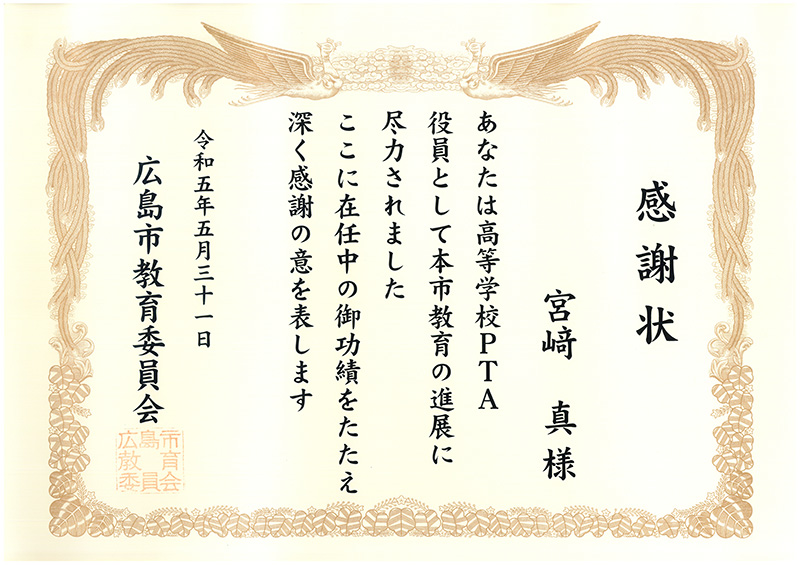 感謝状
宮﨑 真 様
あなたは高等学校PTA
役員として本市教育の進展に
尽力されました
ここに在任中の御功績をたたえ
深く感謝の意を表します
令和五年五月三十一日
広島市教育委員会
広島市
教育
委員会